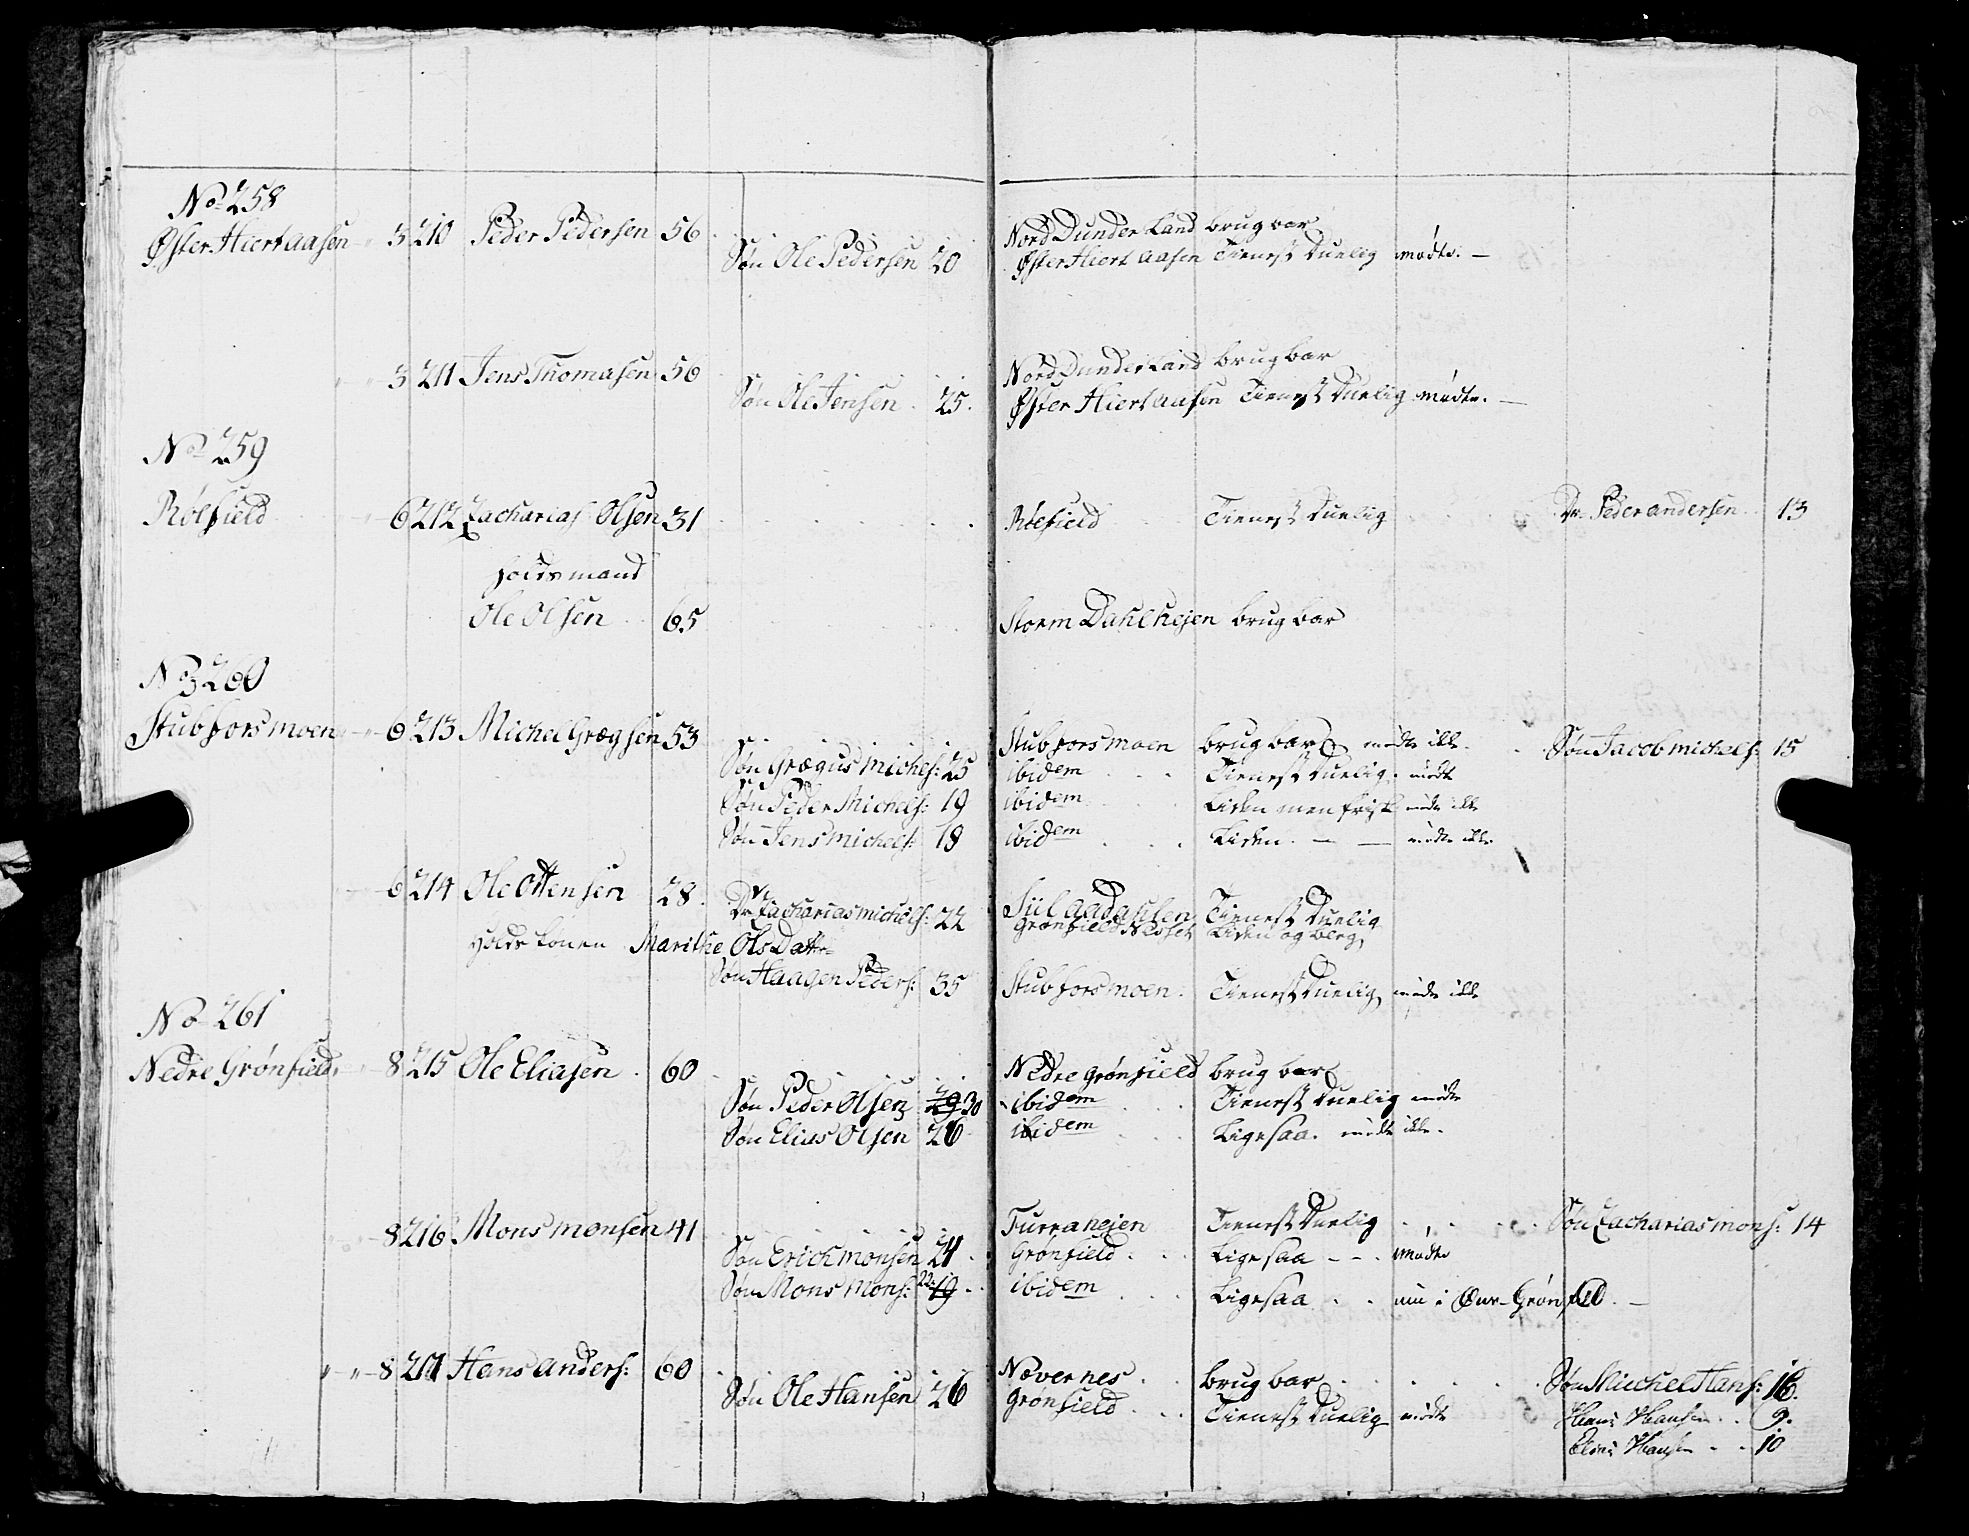 No 258
Øster Hiertaasen 3 210 Peder Pedersen 56 Nord Dunderland brugbar
Søn Ole Pedersen 20 Øster Hiertaasen Tienest Duelig mødte. —
3 211 Jens Thomasen 56 Nord Dunderland brugbar
Søn Ole Jensen 25. Øster Hiertaasen Tienest Duelig mødte. —
No 259
Røefield 6 212 Zacharias Olsen 31 Røefield Tienest Duelig Dr. Peder andersen 13
holdsmand
Ole Olsen 65 Storm Dahlhejen brugbar
No 260
Stubforsmoen 6 213 Michel Grægsen 53 Stubforsmoen brugbar mødte ikke Søn Jacob michels: 15
Søn Grægus michels: 25 ibidem Tienest Duelig. mødt
Søn Peder Michels: 19 ibidem Liden men frisk mødte ikke
Søn Jens michels: 18 ibidem Liden. — — mødte ikke
6 214 Ole Ottensen 28. Tienest Duelig
Dr. Zacharias michels: 22 Grønfield Nesset Liden og
Marithe Ols Datter
Søn Haagen Peders: 35 Stubforsmoen. Tienest Duelig mødte ikke
No 261
Nedre Grønfield 8 215 Ole Eliasen 60 Nedre Grønfield brugbar
Søn Peder Olsen 29 30 ibidem Tienest Duelig mødte
Søn Elias Olsen 26 ibidem Ligesaa. mødte ikke.
8 216 Mons monsen 41 Turrahejen Tienest Duelig Søn Zacharias mons: 14
Søn Erich monsen 21 Grønfield Ligesaa - - mødte
Søn Mons Mons: 22 19 ibidem Ligesaa nu i Øvr-Grønfield. —
8 217 Hans anders: 60 Nævernes brugbar Søn Michel Hans: 16.
Søn Ole Hansen 26 Grønfield Tienest Duelig mødte Hans Hansen 9.
Hansen 10